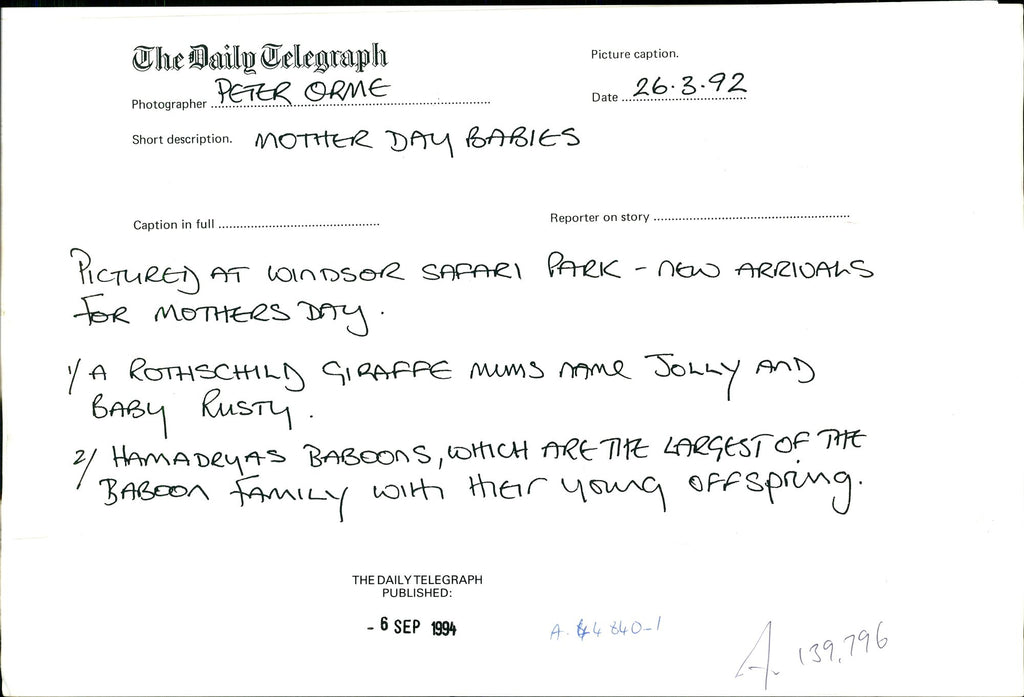 The Daily Telegraph
Picture caption.
Photographer PETER ORME
Date 26.3.92
Short description. MOTHER DAY BABIES
Caption in full
Reporter on story
PICTURED AT WINDSOR SAFARI PARK - NEW ARRIVALS
FOR MOTHERS DAY.
1/ A ROTHSCHILD GIRAFFE MUMS NAME JOLLY AND
BABY RUSTY.
2/ HAMADRYAS BABOONS, WHICH ARE THE LARGEST OF THE
BABOON FAMILY WITH THEIR YOUNG OFFSPRING.
THE DAILY TELEGRAPH
PUBLISHED:
- 6 SEP 1994
A. 139,796